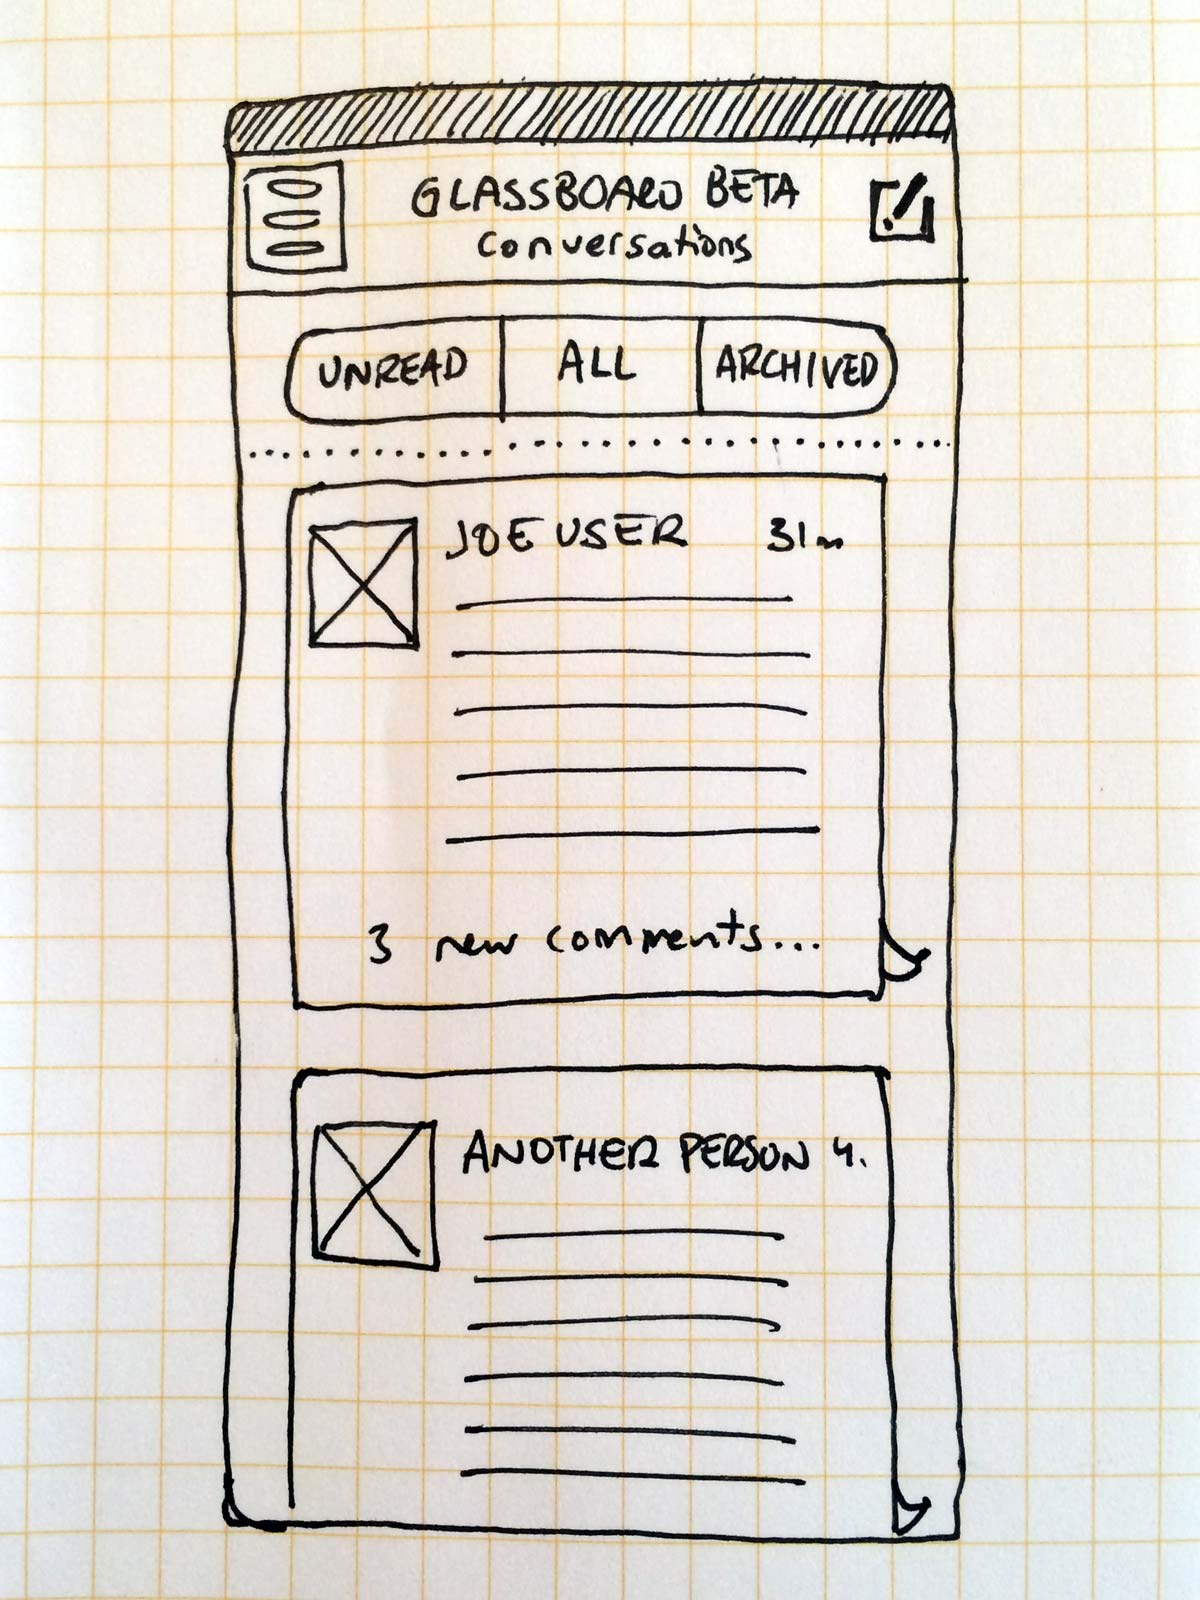 GLASSBOARD BETA
Conversations
UNREAD ALL ARCHIVED
JOE USER 31m
3 new comments...
ANOTHER PERSON 4.